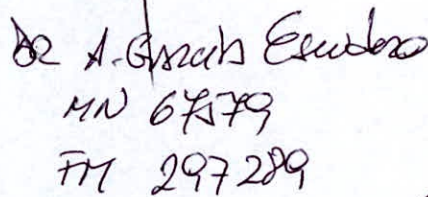 Dr A. García Escudero
MN 67579
FM 297289